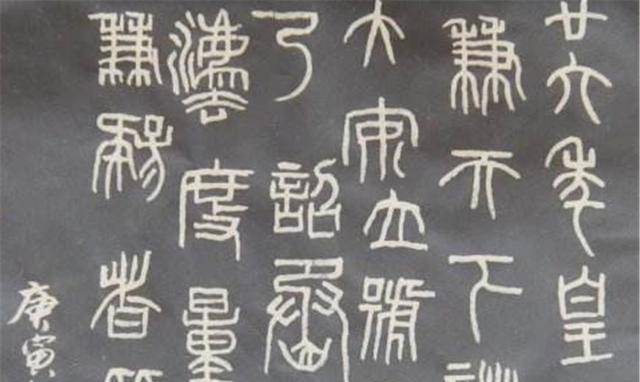 廿六年皇
兼天下諸
大安立號
乃詔丞
灋度量
疑者
庚寅